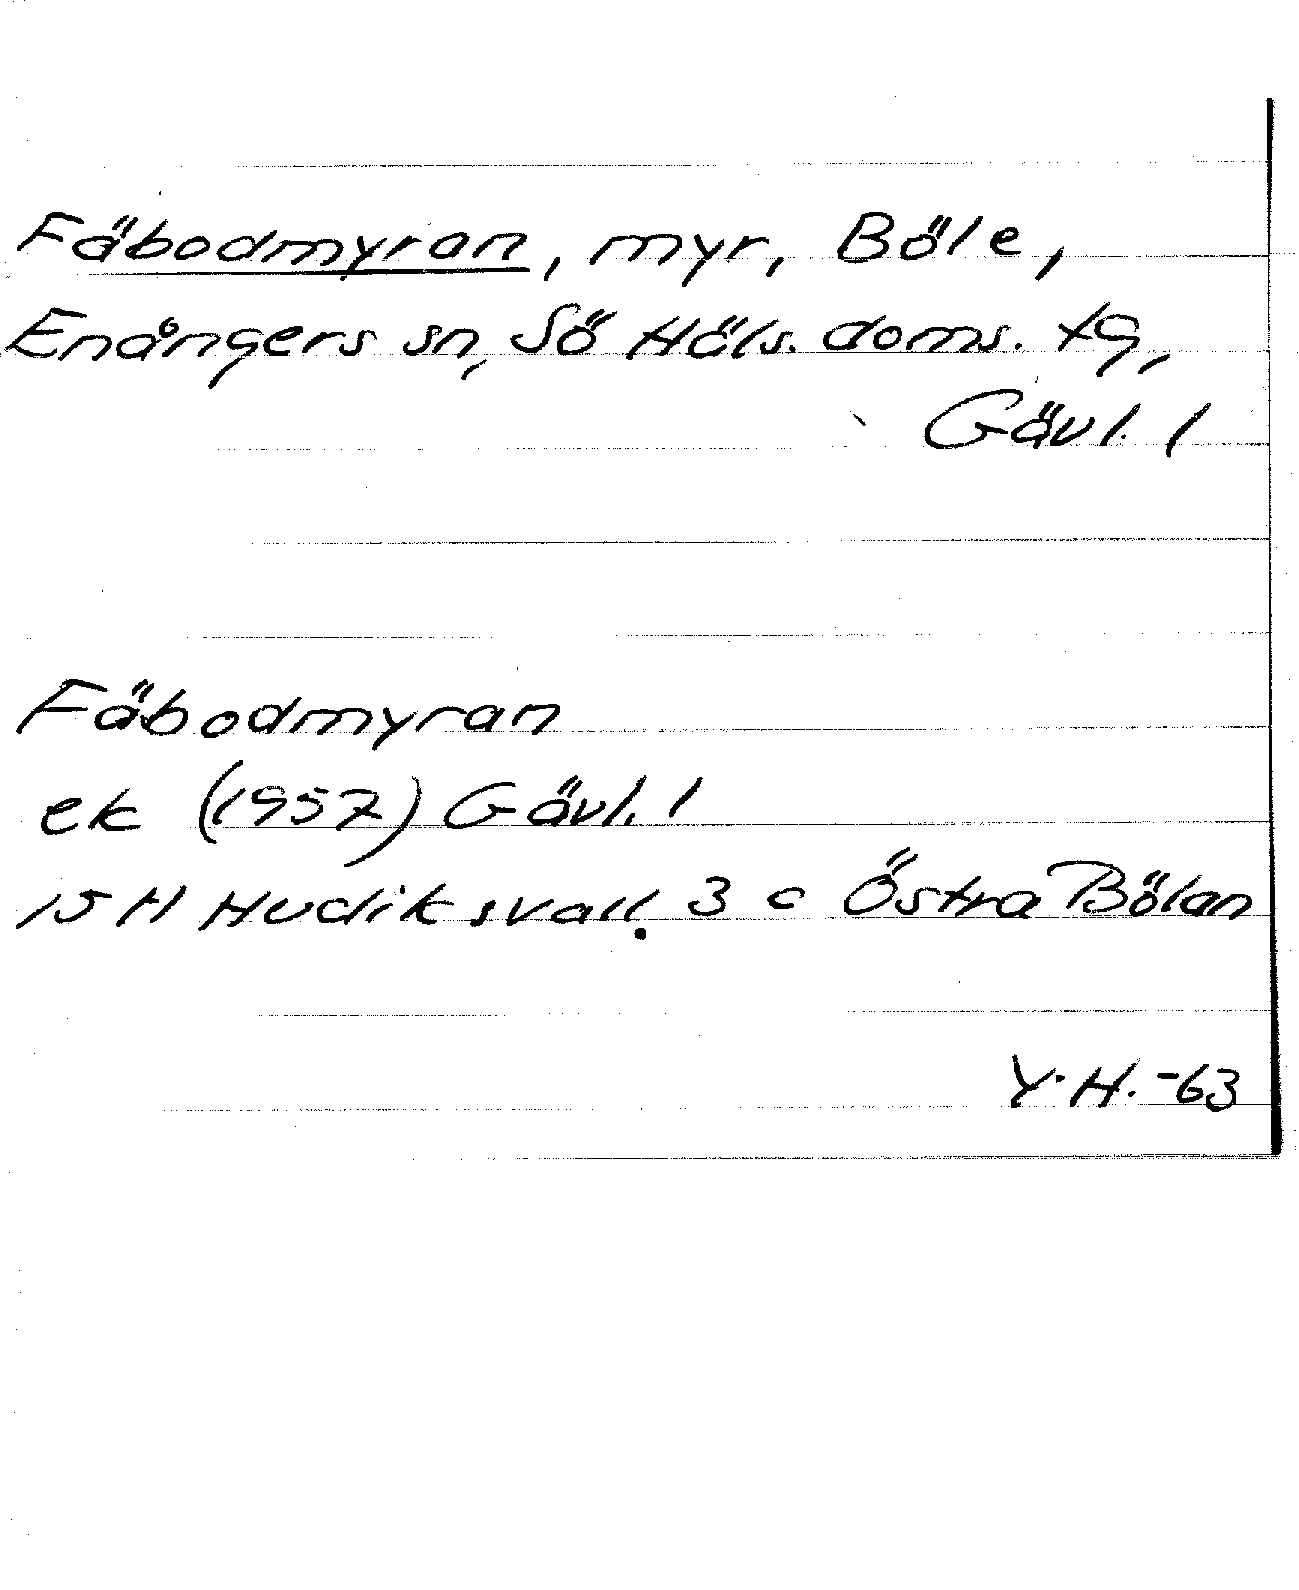 Fäbodmyran, myr, Böle,
Enångers sn, Sö Häls. doms. tg,
Gävl. l
Fäbodmyran
ek (1957) Gävl. l
15 H Hudiksvall. 3 c Östra Bölan
Y. H. -63